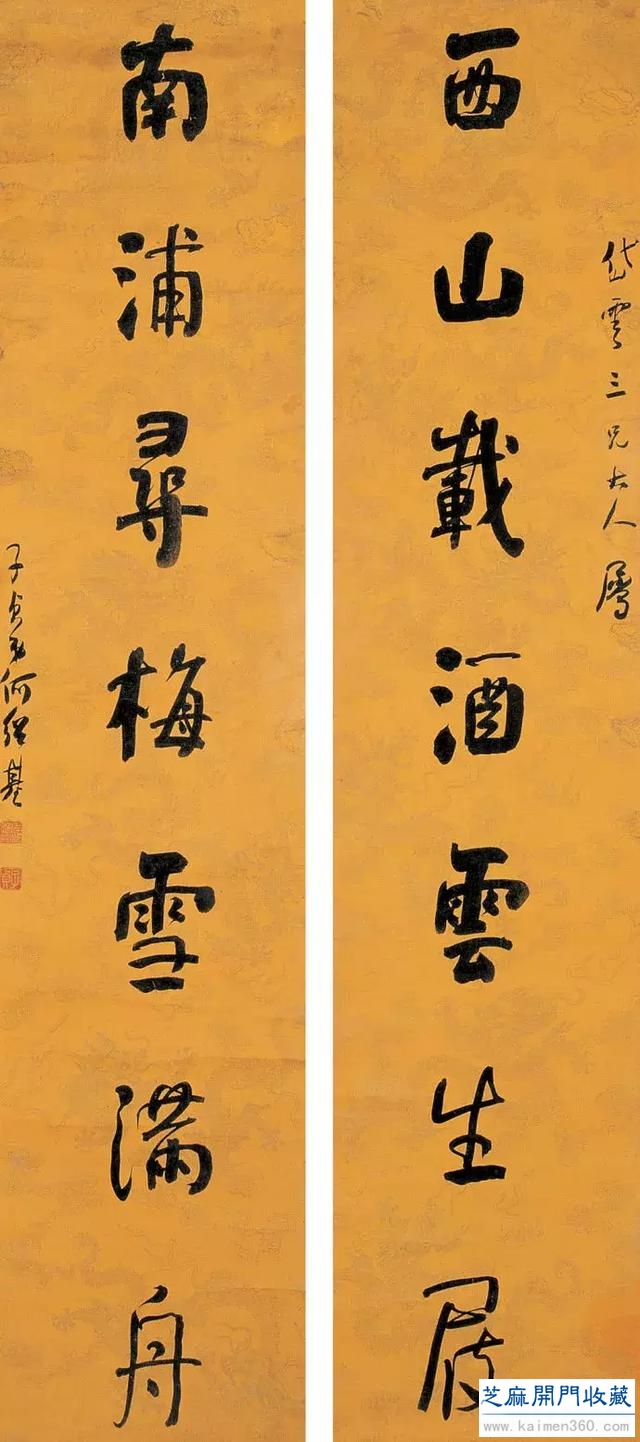 岱雲三兄大人属
西山載酒雲生屐
南浦尋梅雪滿舟
子貞弟何紹基
芝麻開門收藏
www.kaimen360.com